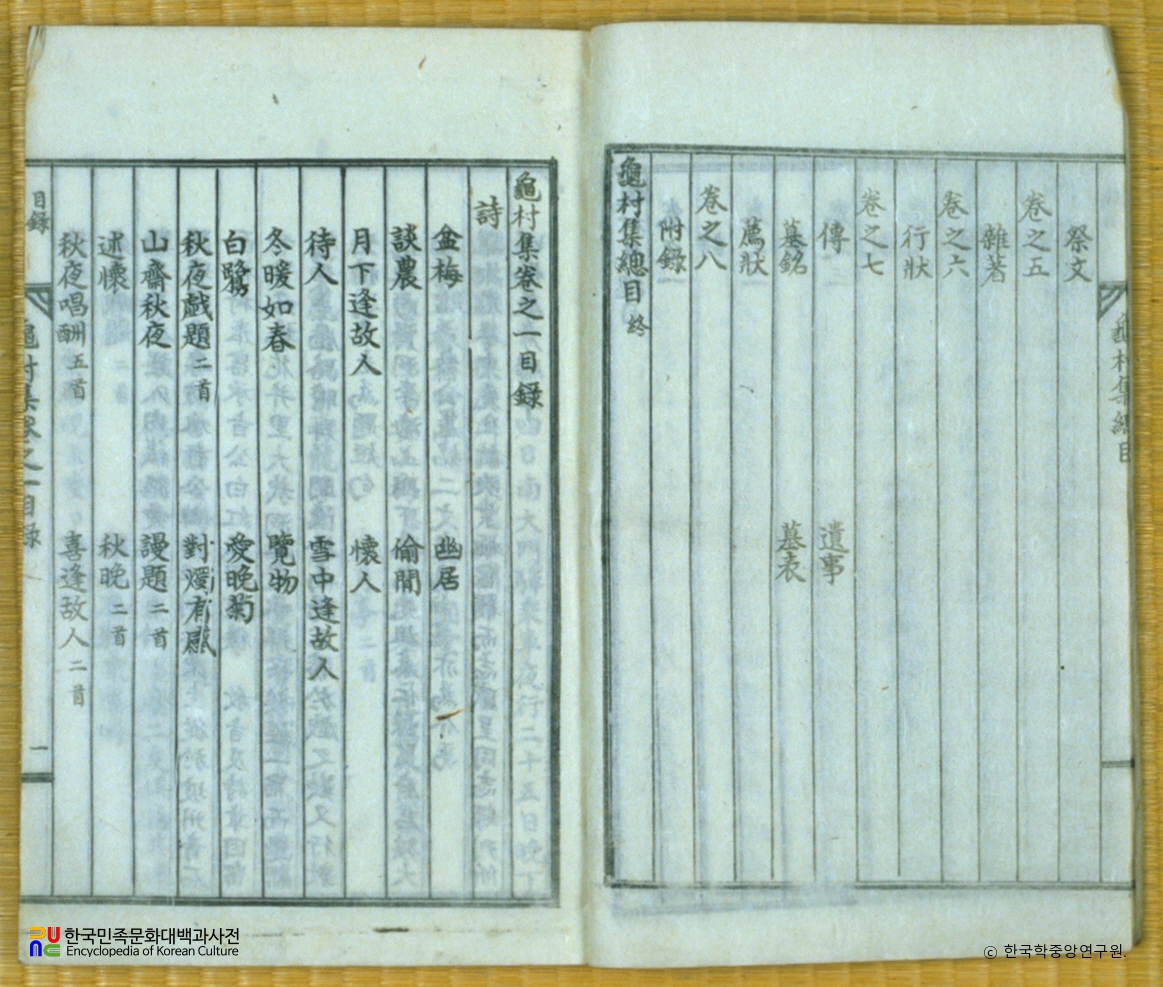 祭文
卷之五
雜著
卷之六
行狀
卷之七
傳 遺事
墓銘 墓表
薦狀
卷之八
附錄
龜村集總目 終
龜村集總目
龜村集卷之一目錄
詩
盆梅 幽居
談農 偷閒
月下逢故人 懷人
待人 雪中逢故人
冬暖如春 覽物
白鷺 愛晚菊
秋夜戱題 二首 對燭有感
山齋秋夜 謾題 二首
述懷 秋晚 二首
秋夜唱酬 五首 喜逢故人 二首
目錄
龜村集卷之一目錄
一
한국민족문화대백과사전
Encyclopedia of Korean Culture
© 한국학중앙연구원.